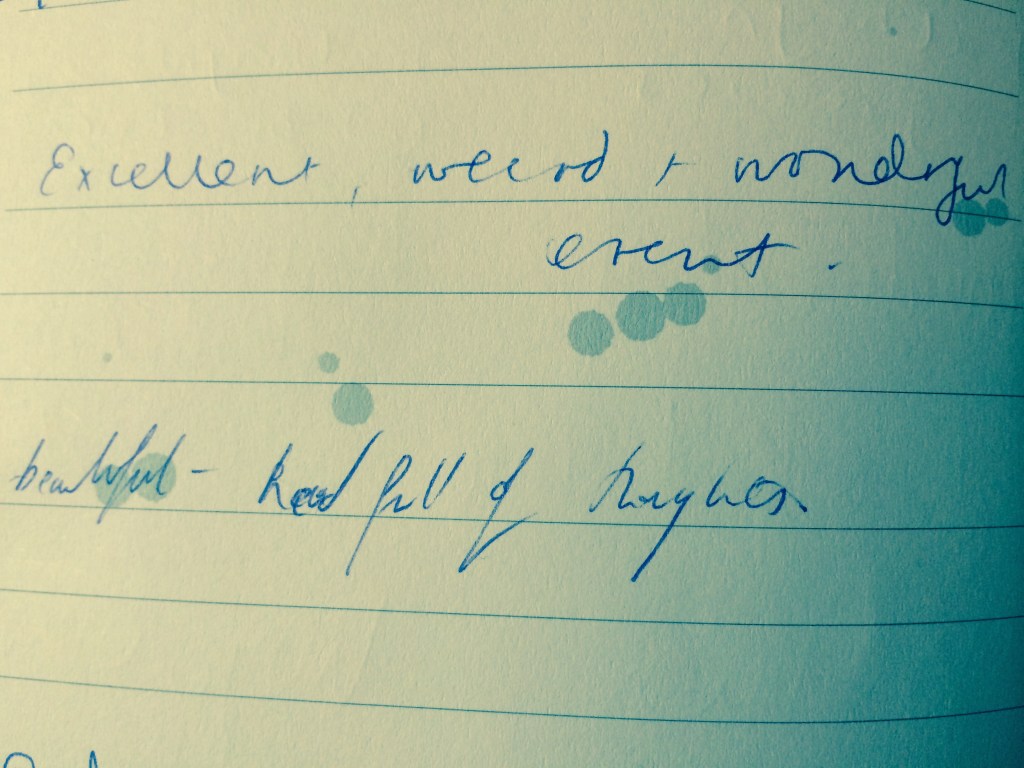 Excellent, weird + wonderful
event.
beautiful - head full of thoughts